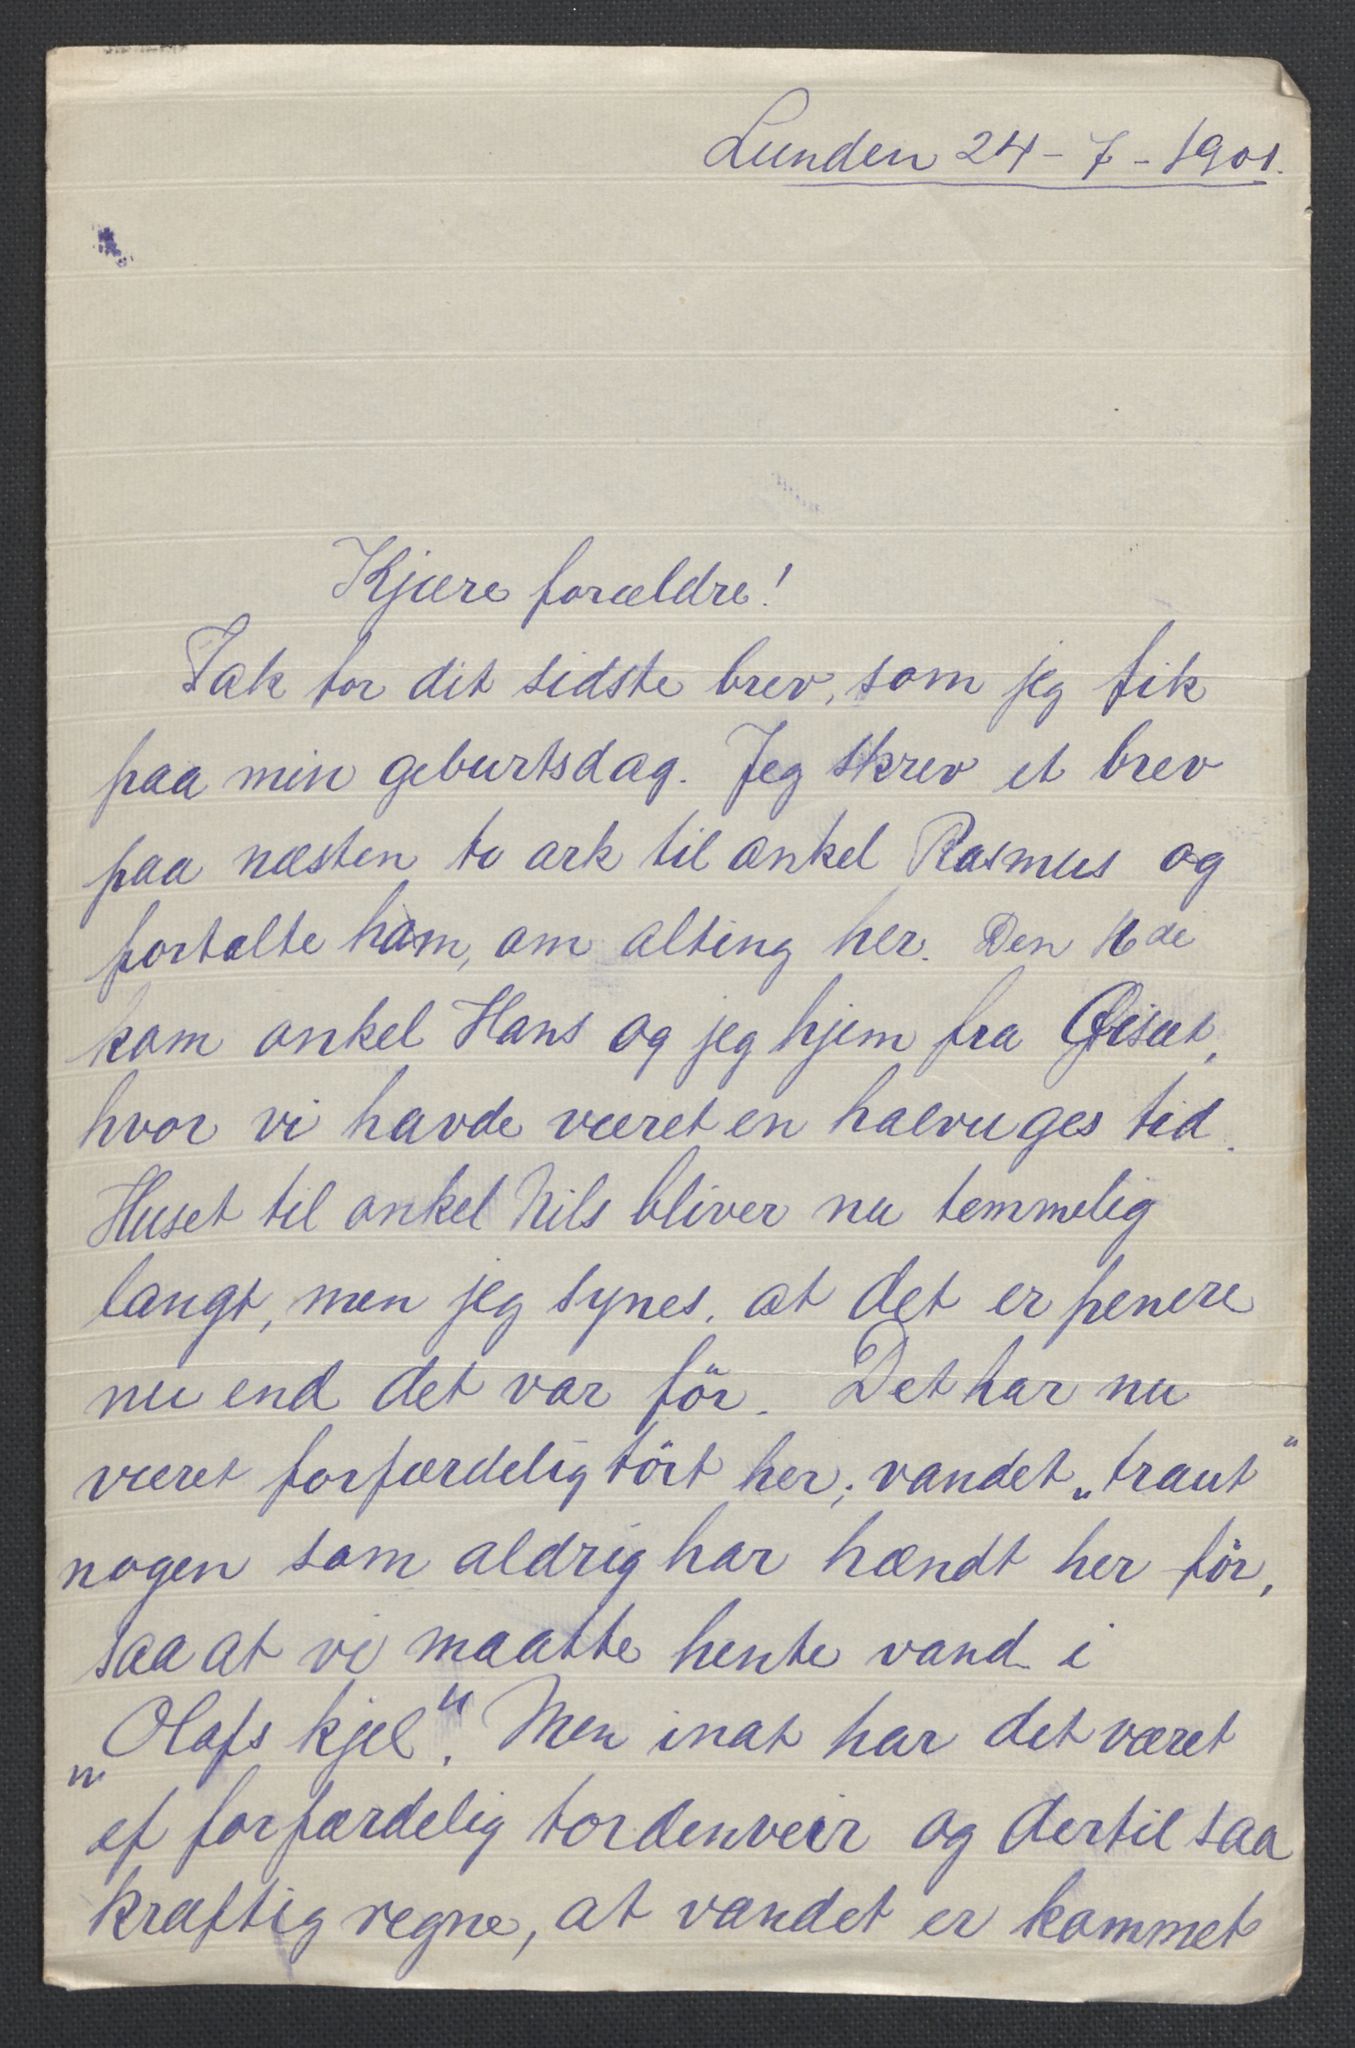 Lunden 24 - 7 - 1901.
Kjære forældre!
Tak for dit sidste brev, som jeg fik
paa min geburtsdag. Jeg skrev et brev
paa næsten to ark til onkel Rasmus og
fortalte ham, om alting her. Den 16de
kom onkel Hans og jeg hjem fra
hvor vi havde været en halvuges tid.
Huset til onkel Nils bliver nu temmelig
langt, men jeg synes, at det er penere
nu end det var för. Det har nu
været forfærdelig tört her; vandet „traut“
nogen som aldrig har hændt her för,
saa at vi maatte hente vand i
„Olafs kjel“. Men inat har det været
et forfærdelig tordenveir og dertil saa
kraftig regne, at vandet er kommet